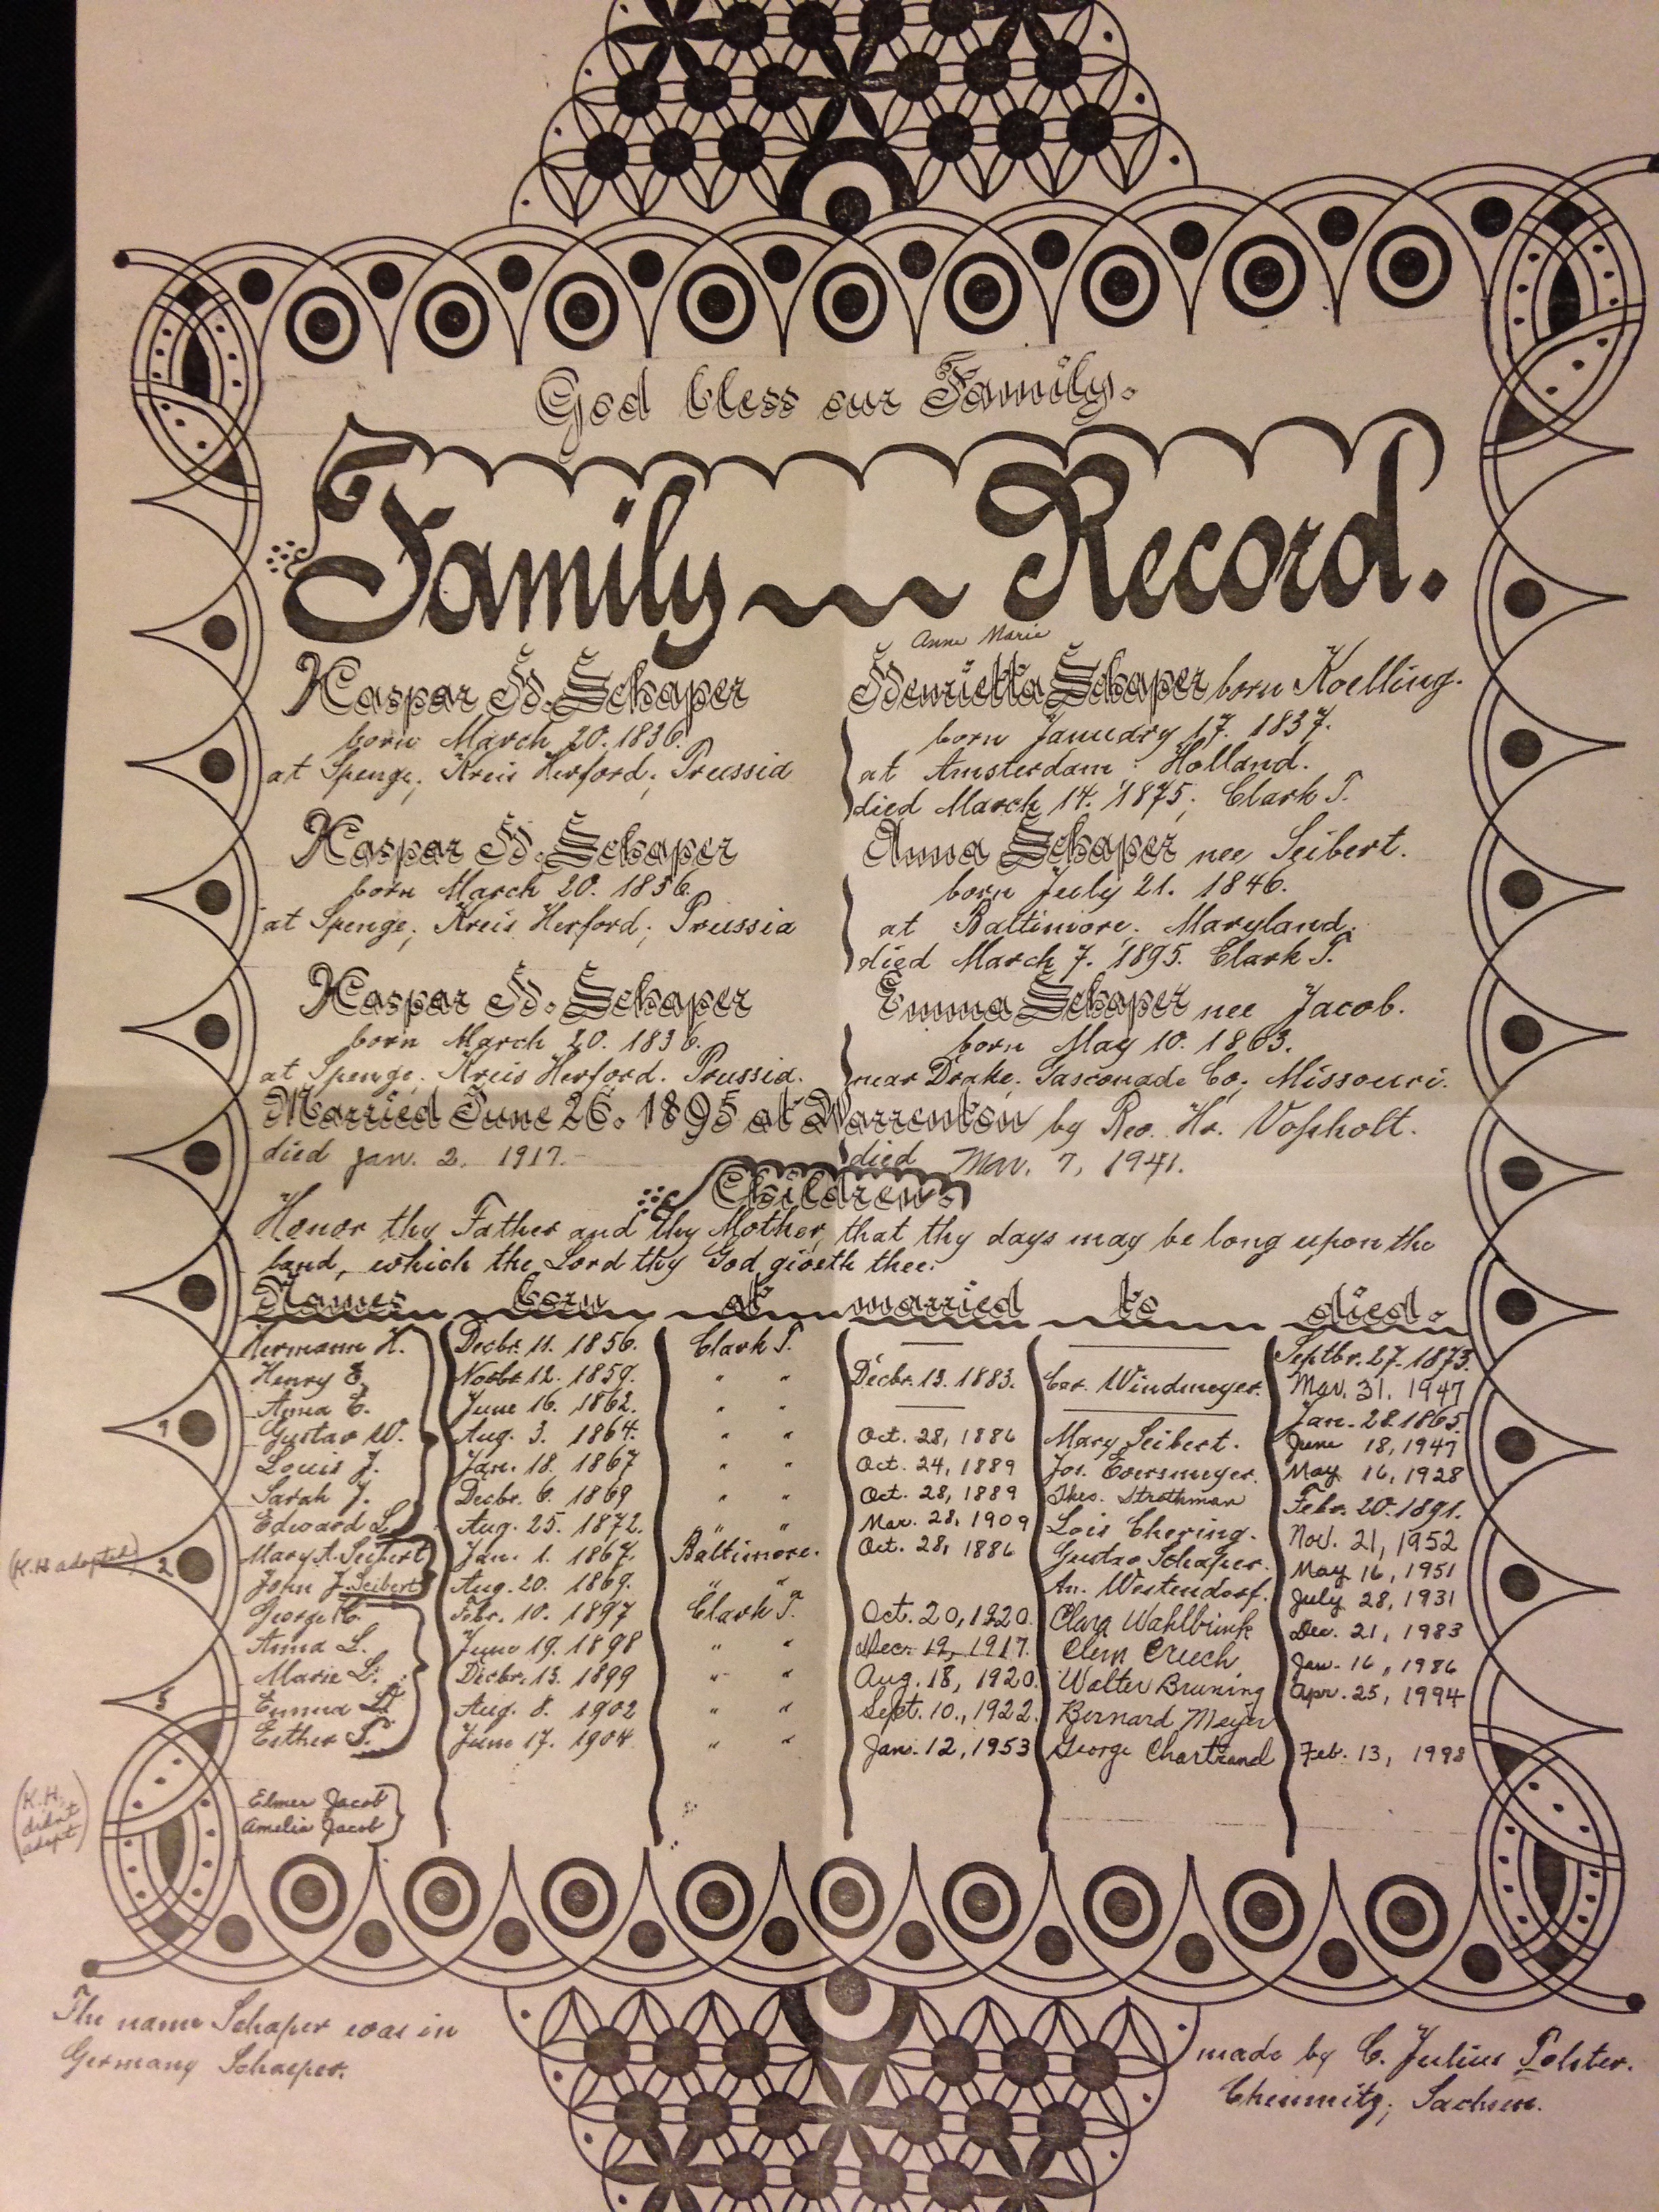 God bless our Family.
Family Record.
Anne Marie
Kaspar H. Schaper
born March 20. 1836.
at Spenge; Kreis Herford; Preussia
Henrietta Schaper born Koelling.
born January 17. 1837.
at Amsterdam: Holland.
died March 14. 1875; Clark T.
Kaspar H. Schaper
born March 20. 1836.
at Spenge; Kreis Herford; Prussia
Anna Schaper nee Seibert.
born July 21. 1846.
at Baltimore. Maryland.
died March 7. 1895. Clark T.
Kaspar H. Schaper
born March 20. 1836.
at Spenge. Kreis Herford. Prussia.
Emma Schaper nee Jacob.
born May 10. 1863.
near Drake. Gasconade Co; Missouri.
Married June 26. 1895 at Warrenton by Rev. Hr. Vosholt.
died Jan. 2, 1917. died Mar. 7, 1941.
Children.
Honor thy Father and thy Mother, that thy days may be long upon the
land, which the Lord thy God giveth thee.
Names born at married to died.
Hermann H. Decbr. 11. 1856. Clark T. Septbr. 27. 1873.
Henry E. Novbr 12. 1859. " " Decbr. 13. 1883. Windmeyer. Mar. 31. 1947
Anna E. June 16. 1862. " " Jan. 28. 1865.
Gustav W. Aug. 3. 1864. " " Oct. 28, 1886 Mary Seibert. June 18, 1947
Louis J. Jan. 18. 1867 " " Oct. 24, 1889 Jos. Eversmeyer. May 16, 1928
Sarah J. Decbr. 6. 1869 " " Oct. 28, 1889 Theo. Strothman Febr. 20. 1891.
Edward L. Aug. 25. 1872. " " Mar. 28, 1909 Lois Chering. Nov. 21, 1952
(K.H adopted) 2 Mary A. Seibert Jan. 1. 1867. Baltimore. Oct. 28, 1886 Gustav Schaper. May 16, 1951
John J. Seibert Aug. 20. 1869. " " An. Westendorf. July 28, 1931
George C. Febr. 10. 1897 Clark T. Oct. 20, 1920. Clara Wahlbrink Dec. 21, 1983
Anna L. June 19. 1898 " " Dec. 19, 1917. Clem Creech Jan. 16, 1986
Marie L. Decbr. 13. 1899 " " Aug. 18, 1920. Walter Bruning Apr. 25, 1994
5 Emma L. Aug. 8. 1902 " " Sept. 10., 1922. Bernard Meyer
Esther T. June 17. 1904 " " Jan. 12, 1953 George Chartrand Feb. 13, 1998
(K.H. didn't adopt)
Elmer Jacob
Amelia Jacob
The name Schaper was in
Germany Schaeper.
made by C. Julius Polster.
Chemnitz; Sachsen.